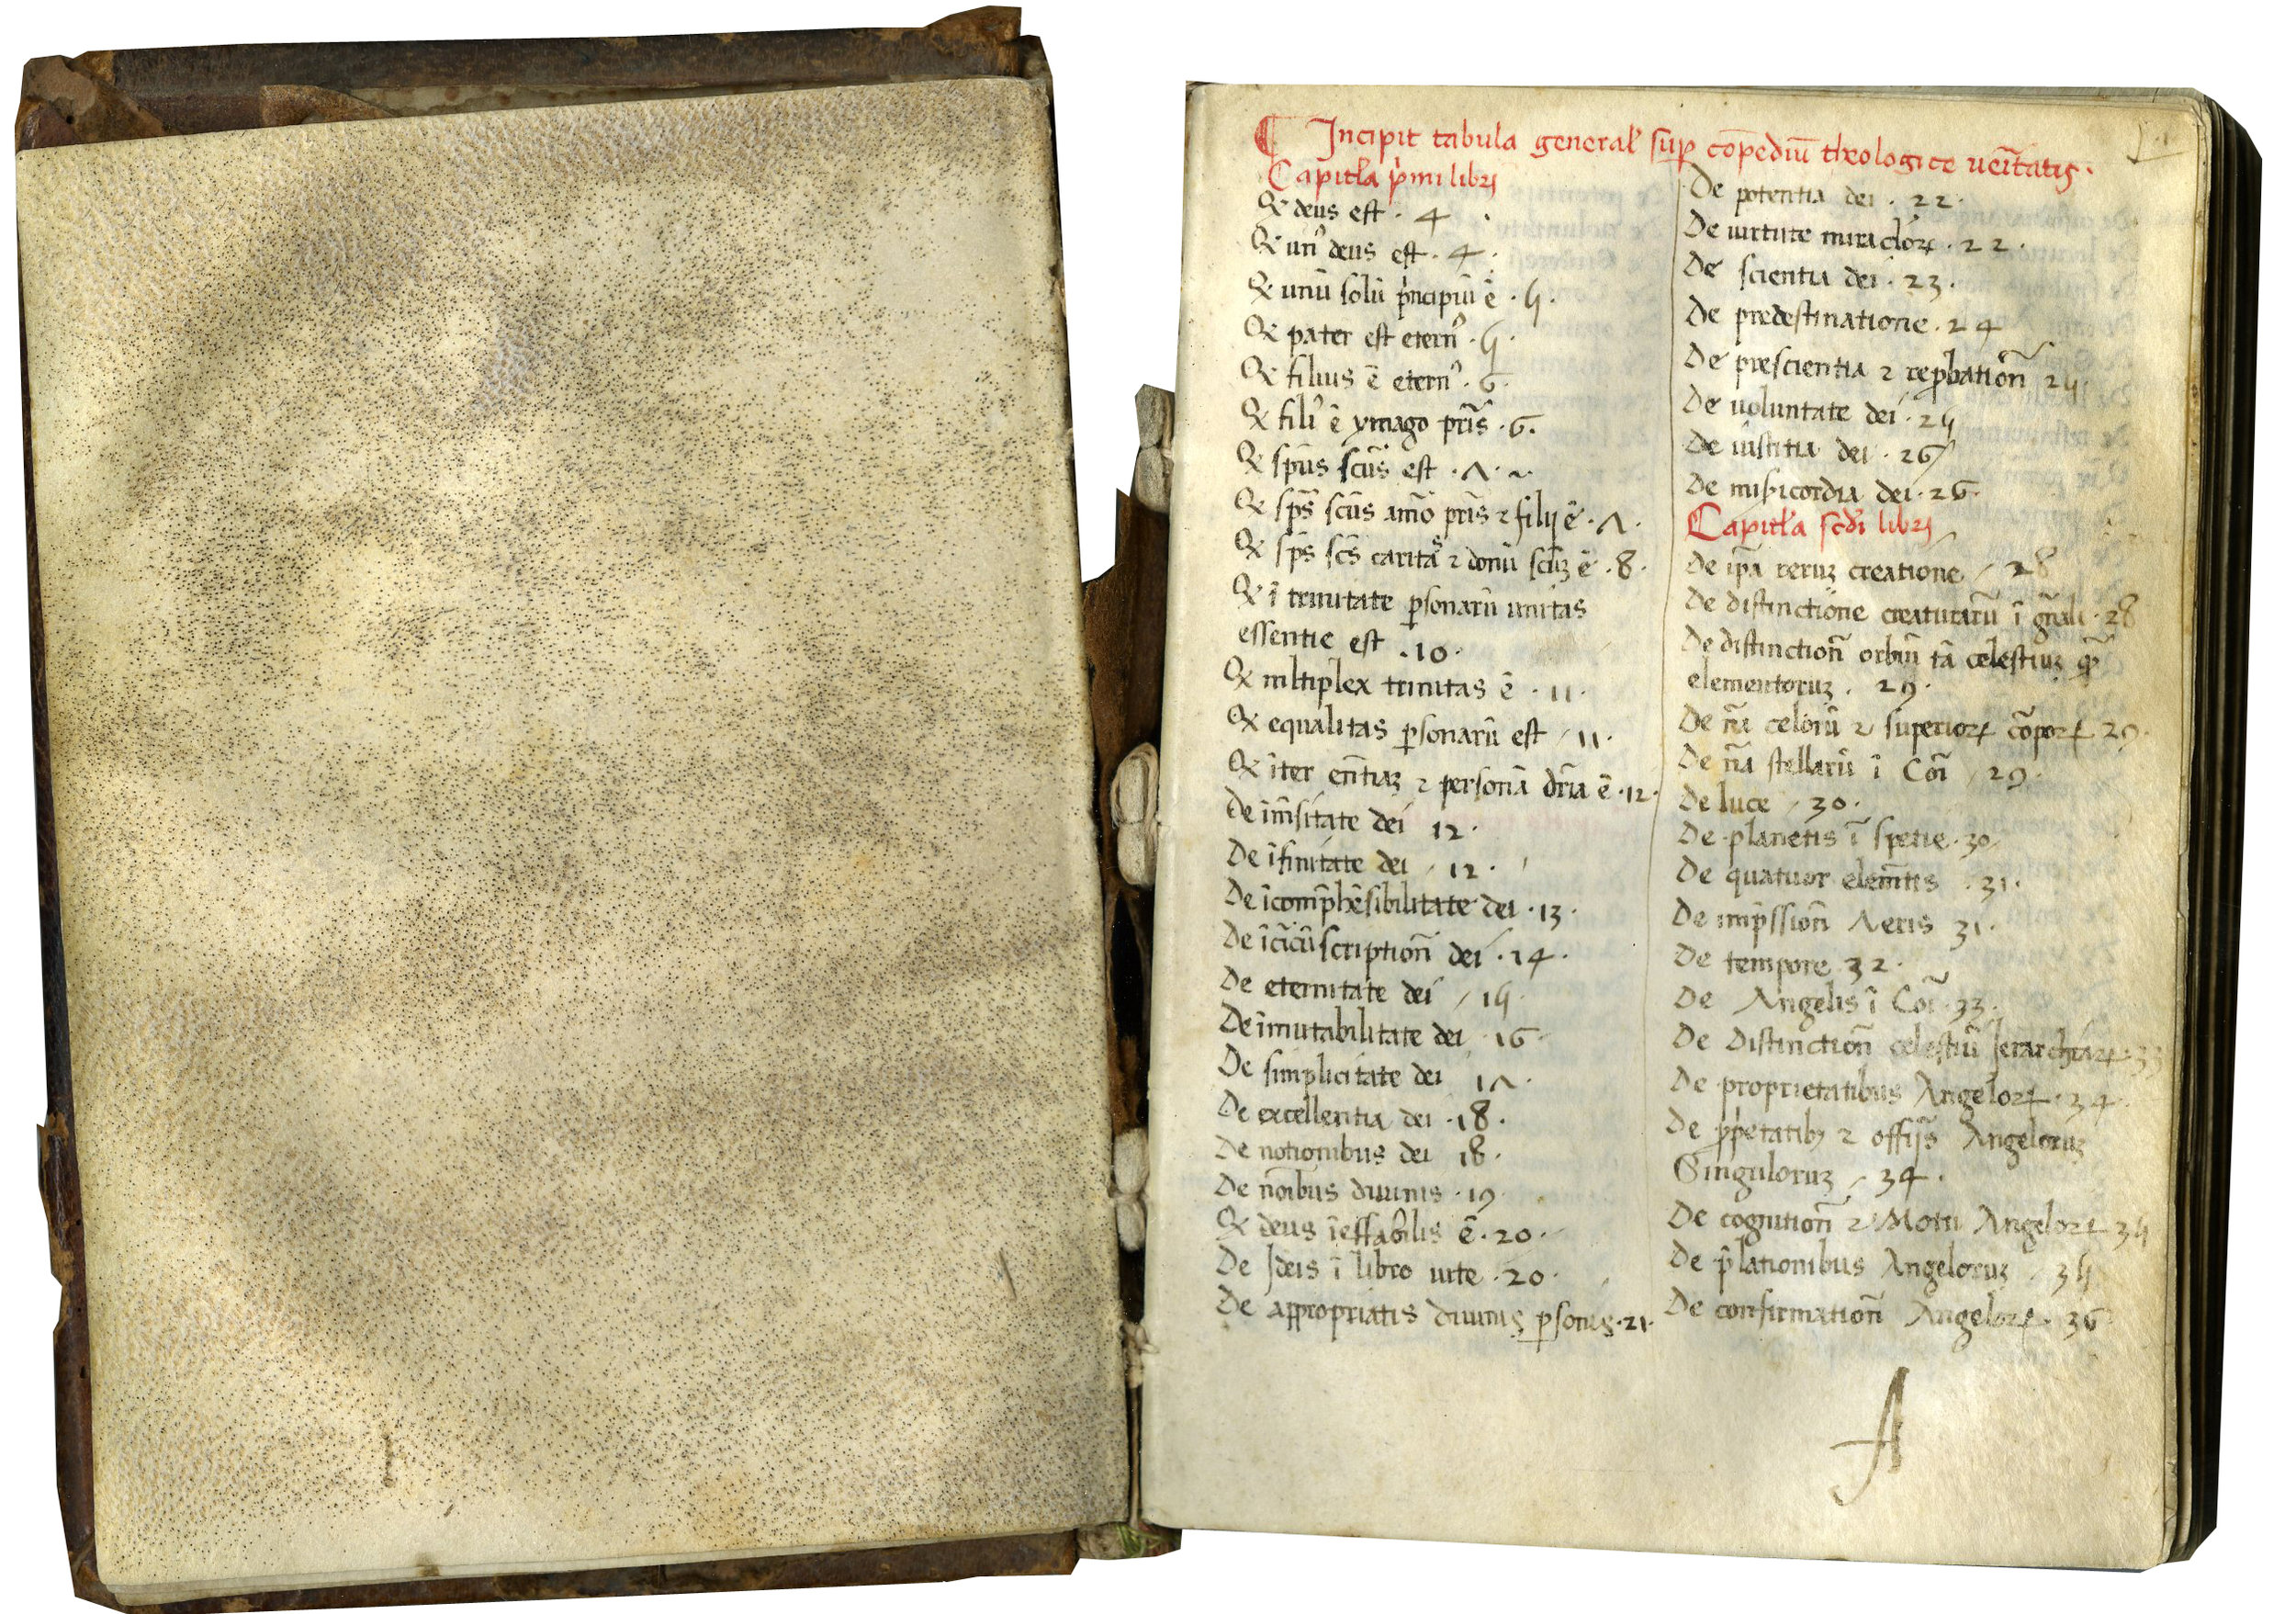 Incipit tabula general' sup̱ cōpediū theologice uei̅tatis.
Capitl'a p'mi libri
Qͥ deus est . 4
Qͥ un⁹ deus est . 4 .
Qͥ unū solū p'ncipiū ē . 5 .
Qͥ pater est etern⁹ . 5 .
Qͥ filius ē etern⁹ . 6 .
Qͥ fili⁹ ē ymago pr̄is . 6 .
Qͥ spūs scūs est . 7 . ~
Qͥ sps̄ scūs amō pr̄is ⁊ filij ē . 7 .
Qͥ sps̄ scs̄ caritas ⁊ donū scūz ē . 8 .
Qͥ ī trinitate ꝑsonarū unitas
essentie est . 10 .
Qͥ mltiplex trinitas ē . 11 .
Qͥ equalitas ꝑsonarū est / 11 .
Qͥ īter eēntiaz ⁊ personā dr̄ia ē . 12 .
De īm̄sitate dei 12 .
De īfinitate dei / 12 .
De īcomp̄hēsibilitate dei . 13 .
De īcīcūscription̄ dei . 14 .
De eternitate dei / 15 .
De īmutabilitate dei 16
De simplicitate dei 17 .
De excellentia dei . 18 .
De notionibus dei 18 .
De nōibus diuinis . 19
Qͥ deus īeffabilis ē . 20 .
De Jdeis ī libro uite . 20 .
De appropriatis diuinis ꝑsonis . 21 .
De potentia dei . 22 .
De uirtute miraclōꝝ . 22 .
De scientia dei . 23 .
De predestinatione . 24
De prescientia ⁊ reꝓbation̄ 25
De uoluntate dei . 25
De iustitia dei . 26
De misicordia dei . 26 .
Capitl'a scd̄i libri
De ip̄a reruz creatione / 28
De distinctione creaturarū ī gn̄ali . 28
De distinction̄ orbiū tā celestiuz qͣ̄
elementoruz . 29 .
De nā̄ celorū ⁊ superioꝝ cōpoꝝ 29 .
De nā̄ stellarū ī Cōi / 29 .
De luce / 30 .
De planetis ī spetie . 30
De quatuor elem̄tis . 31 .
De imp̄ssion̄ Aeris 31 .
De tempore 32 .
De Angelis ī Cōi . 33 .
De Distinction̄ celestiū Jerarchiaꝝ . 33
De proprietatibus Angeloꝝ . 34 .
De ꝓp̄etatibꝫ ⁊ offijs̄ Angeloruz
Singuloruz / 34 .
De cognition̄ ⁊ Motu Angeloꝝ 35
De p̄lationibus Angeloruz / 35
De confirmation̄ Angeloꝝ . 36
A